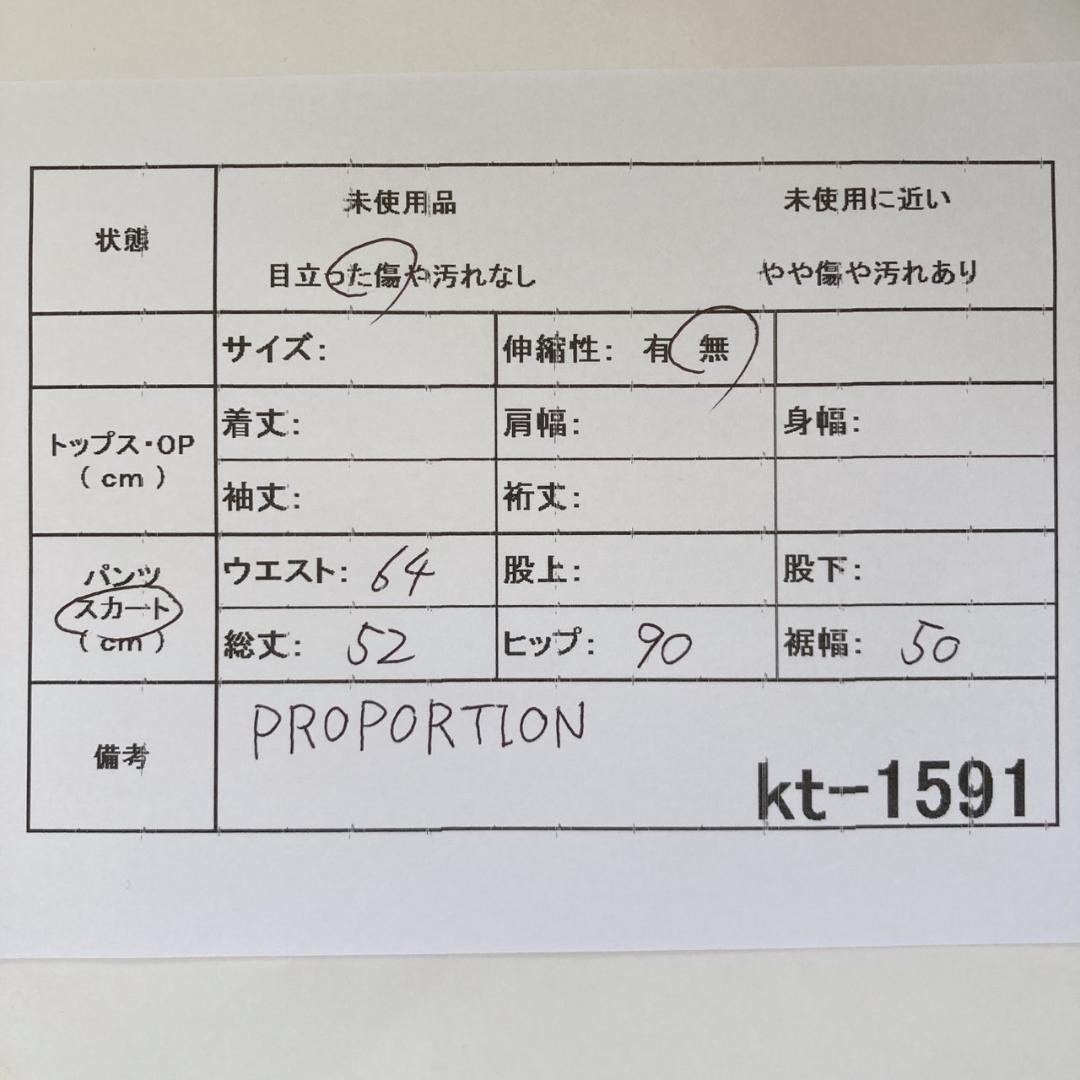 状態
未使用品 未使用に近い
目立った傷や汚れなし やや傷や汚れあり
サイズ: 伸縮性: 有 無
トップス・OP
(cm)
着丈: 肩幅: 身幅:
袖丈: 裄丈:
パンツ
スカート
(cm)
ウエスト: 64 股上: 股下:
総丈: 52 ヒップ: 90 裾幅: 50
備考
PROPORTION
kt-1591